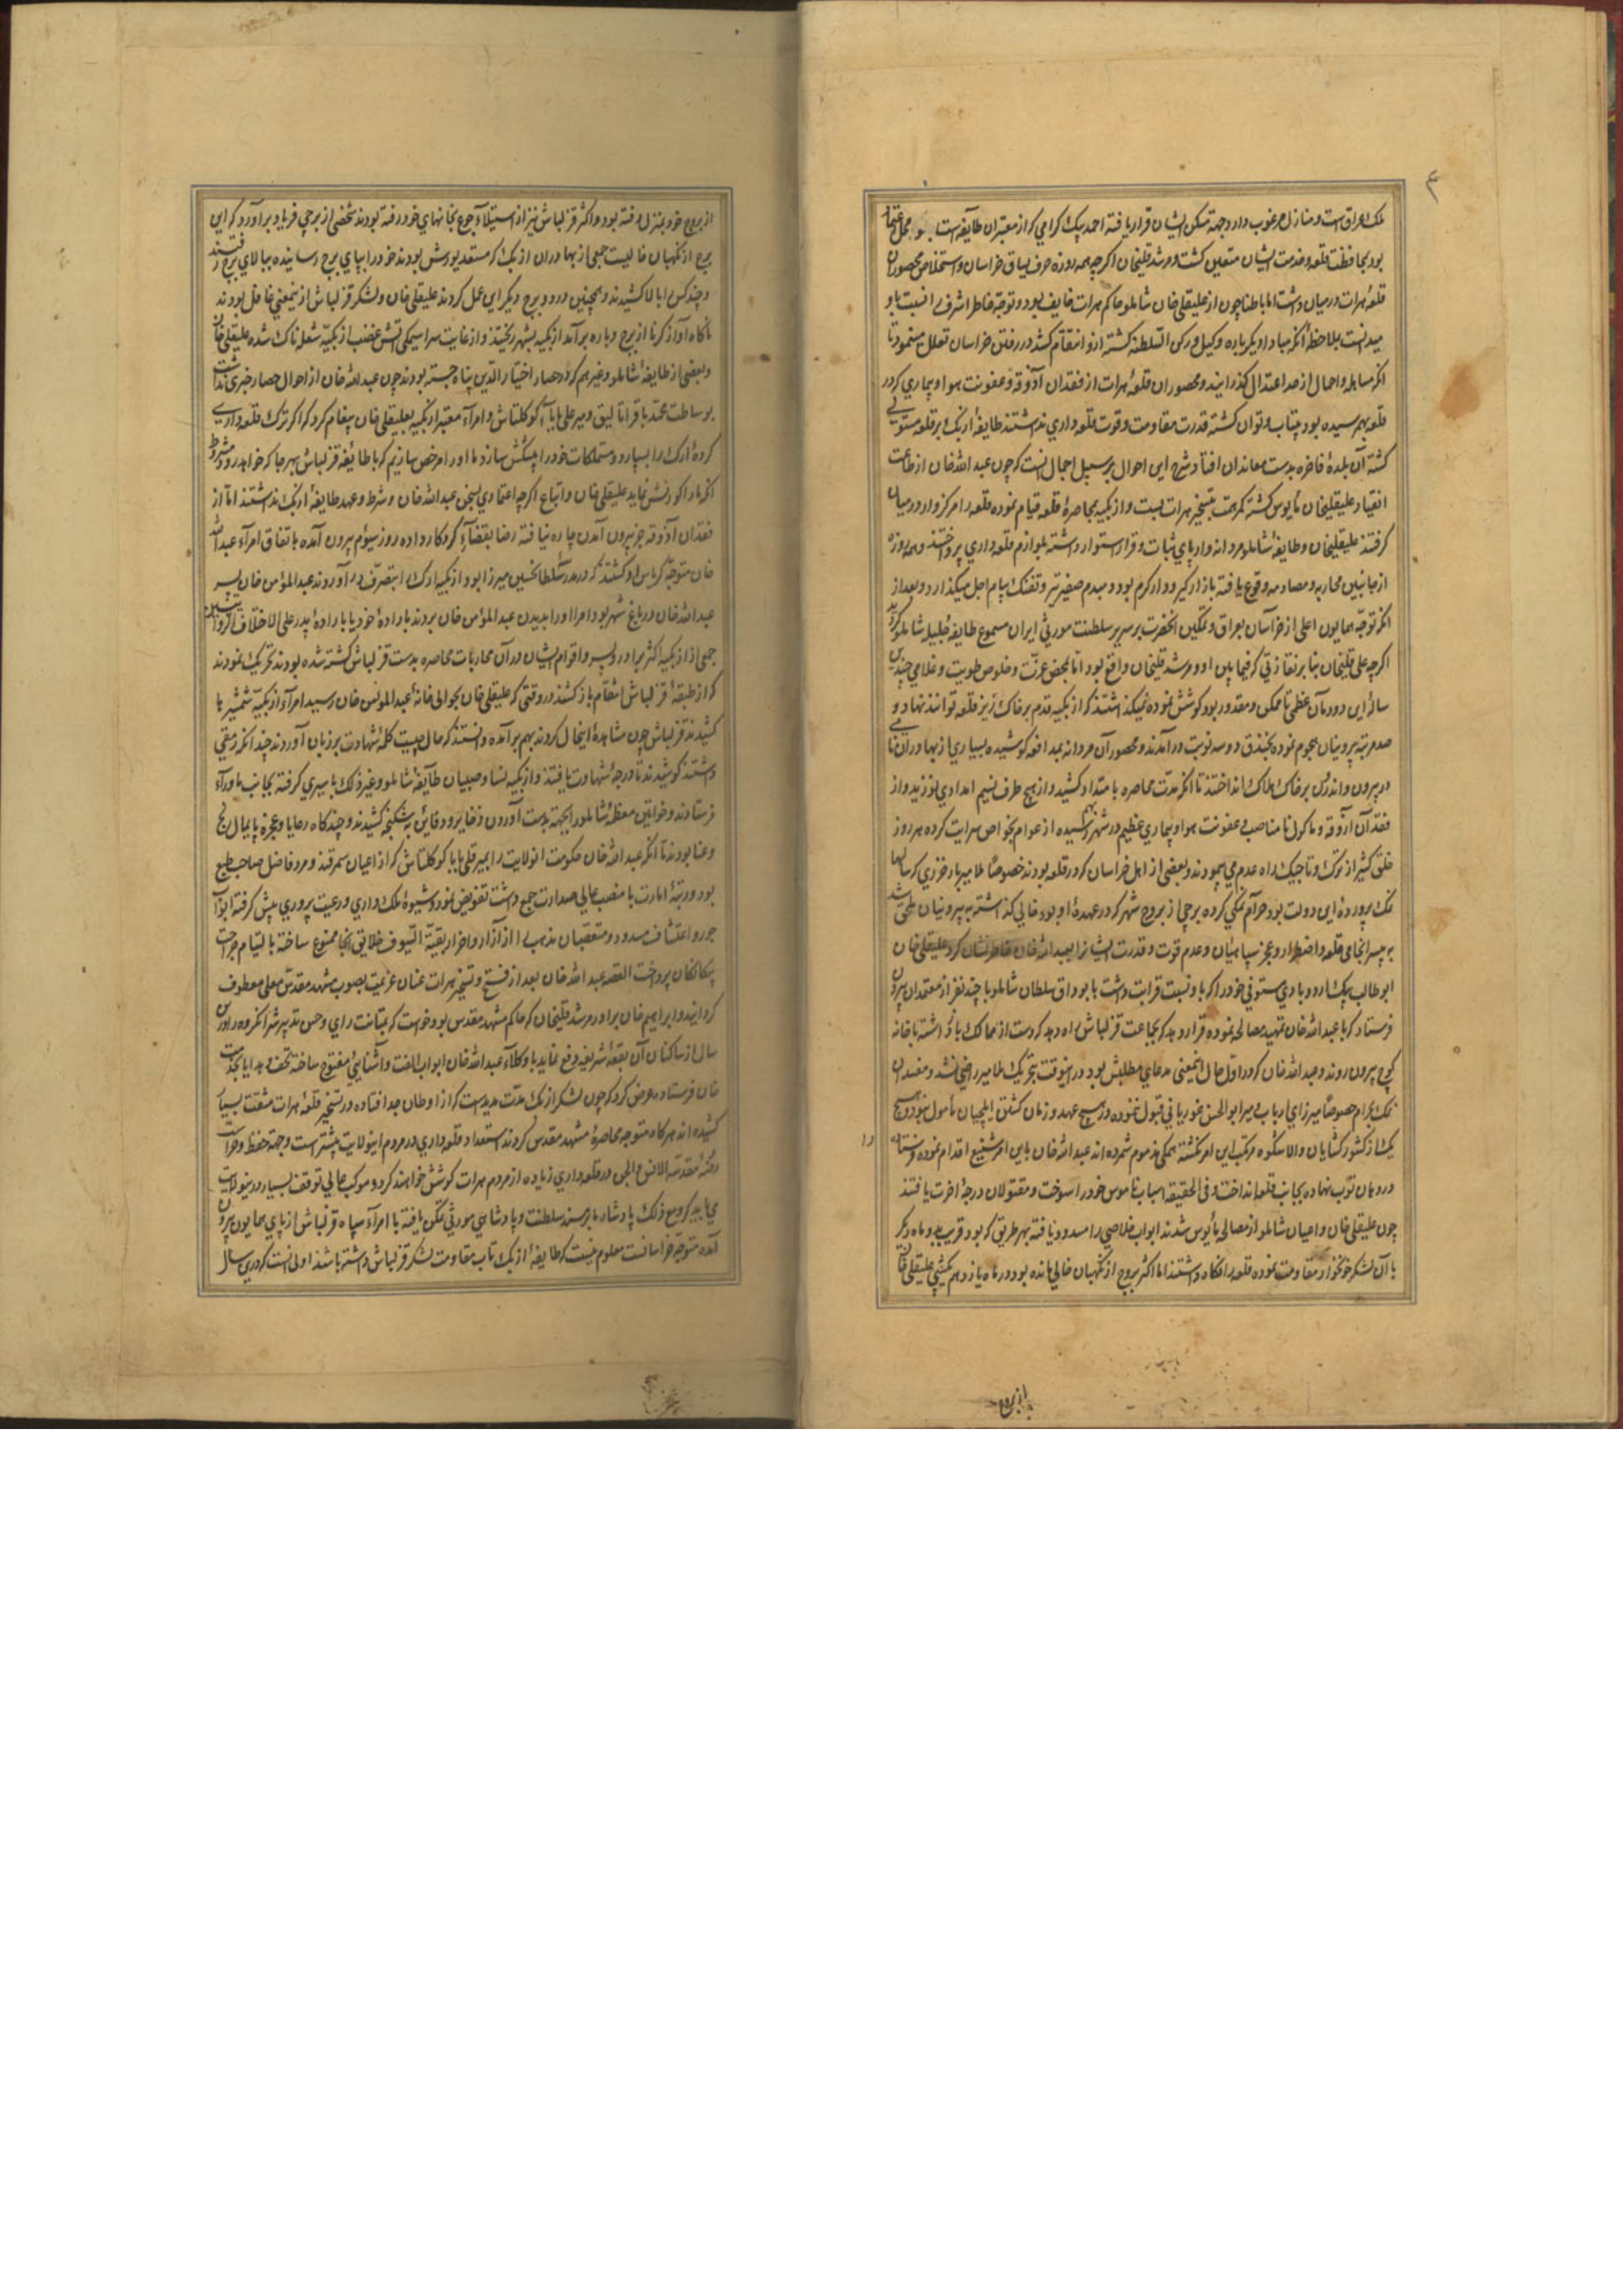 ملک عراق است و منازل مرغوب دارد وجهة مسکن ایشان قرار یافته احمد بیک کرامی که از معتبران طایفه استاجلو محل اعتماد
بود بمحافظت قلعه و خدمت ایشان متعین کشت و مرشد قلیخان اکرچه همه روزه حرف یساق خراسان و استخلاص محصوران
قلعه هرات در میان داشت اما باطنا چون از علیقلی خان شاملو حاکم هرات خایف بود و توجه خاطر اشرف را نسبت باو
میدانست بملاحظه آنکه مبادا دیکر باره وکیل و رکن السلطنه کشته ازو انتقام کشد در رفتن خراسان تعلل مینمود تا
آنکه مساهله و اهمال از حد اعتدال کذرانید و محصوران قلعه هرات از فقدان آذوقه و عفونت هوا و بیماری که در
قلعه بهم رسیده بود بیتاب و توان کشته قدرت مقاومت و قوت قلعه داری نداشتند طایفه ازبک بر قلعه مستولی
کشته آن بلده فاخره بدست معاندان افتاد و شرح این احوال بر سبیل اجمال آنست که چون عبد الله خان از اطاعت
انقیاد علیقلیخان مایوس کشته کمر همت بتسخیر هرات بست و ازبکیه بمحاصره قلعه قیام نموده قلعه را مرکزوار در میان
کرفتند علیقلیخان و طایفه شاملو مردانه وار پای ثبات و قرار استوار داشته بلوازم قلعه داری پرداختند و همه روزه
از جانبین محاربه و مصادمه وقوع یافته بازار کیر و دار کرم بود و مبدم صفیر تیر و تفنک پیام اجل میکذارد و بعد از
آنکه توجه همایون اعلی از خراسان بعراق و تمکین آنحضرت بر سریر سلطنت موروثی ایران مسموع طایفه جلیل شاملو کردید
اکرچه علی قلیخان بنا بر نقار ذتی که فیما بین او و مرشد قلیخان واقع بود اما بمحض عزت و خلوص طویت و غلامی چندین
ساله این دودمان عظمی تا ممکن و مقدور بود کوشش نموده نمیکذاشتند که ازبکیه قدم بر خاک ریز قلعه توانند نهاد و
صد مرتبه بیرونیان هجوم نموده بخندق دو سه نوبت درآمدند و محصوران مردانه بمدافعه کوشیده بسیاری از بهادران نامی
در بیرون و اندرون بر خاک هلاک انداختند تا آنکه مدت محاصره بامتداد کشید و از هیچ طرف نسیم امدادی نوزید و از
فقدان آزوقه و ماکول نامناصب و عفونت هوا بیماری عظیم در شهر بهم رسیده از عوام بخواص سرایت کرده هر روز
خلق کثیر از ترک و تاجیک راه عدم می پیمودند و بعضی از اهل خراسان که در قلعه بودند خصوصا ملا میر بادخرزی که سالها
نمک پرورده این دولت بود حرام نمکی کرده برجی از بروج شهر که در عهده او بود خالی کذاشته به بیرونیان ملحق شد
بی سرانجامی قلعه و اضطرار و عجز سپاهیان و عدم قوت و قدرت ایشانرا بعبد الله خان خاطرنشان کرد علیقلی خان
ابو طالب بیک اردوبادی مستوفی خود را که با او نسبت قرابت داشت با بوداق سلطان شاملو با چند نفر از معتمدان بیرون
فرستاد که با عبد الله خان تمهید مصالحه نموده قرار دهد که بجماعت قزلباش راه دهد که دست از ممالک باز داشته با خانه
کوچ بیرون روند و عبد الله خان که در اول حال اینمعنی مدعای مطلبش بود در اینوقت بتحریک ملا میر راضی نشد و مفسدان
نمک بحرام خصوصا میرزای ارباب و میر ابوالحسن غوریانی قبول ننموده در هیچ عهد و زمان کشتن ایلچیان مامول نبود و هیچ
یک از کشورکشایان والا شکوه مرتکب این امر نکشته همکی مذموم شمرده اند عبد الله خان باین امر شنیع اقدام نموده فرستاده را
در دهان توپ نهاده بجانب قلعه انداخت و فی الحقیقه اسباب ناموس خود را سوخت و مقتولان درجه آخرت یافتند
چون علیقلی خان و اعیان شاملو از مصالحه مأیوس شدند ابواب خلاصی را مسدود یافته بهر طریق که بود قریب دو ماه دیکر
با آن لشکر خونخوار مقاومت نموده قلعه را نکاه داشتند اما اکثر بروج از نکهبان خالی مانده بود و در ماه یازدهم یکشبی علیقلی خان
از بروج
از بروج خود بمنزل رفته بود و اکثر قزلباش نیز از استیلاء جوع بخانهای خود رفته بودند شخصی از برجی فریاد برآورد که این
برج از نکهبان خالیست جمعی از بهادران ازبک که مستعد یورش بودند خود را بپای برج رسانیده ببالای برج رفتند
و چند کس را بالا کشیدند و همچنین در دو برج دیکر این عمل کردند علیقلی خان و لشکر قزلباش ازینمعنی غافل بودند
ناکاه آواز کرنا از برج و باره برآمد ازبکیه بشهر ریختند و از غایت سراسیمکی آتش غضب ازبکیه شعله ناک شده علیقلی خان
و بعضی از طایفه شاملو و غیرهم که در حصار اختیار الدین پناه جسته بودند چون عبد الله خان از احوال حصار خبری نداشت
بوساطت محمد باقر اتالیق و میر علی بابای کوکلتاش و امرآء معتبر ازبکیه بعلیقلی خان پیغام کرد که اکر ترک قلعه داری
کرده ارک را بسپارد و متملکات خود را پیشکش سازد ما او را مرخص سازیم که با طایفه قزلباش بهر جا که خواهد رود بشرط
آنکه ما را کورنش نماید علیقلی خان و اتباع اکرچه اعتمادی بسخن عبد الله خان و شرط و عهد طایفه ازبک نداشتند اما از
فقدان آذوقه جز بیرون آمدن چاره نیافته رضا بقضآء کردکار داده روز سیوم بیرون آمده باتفاق امرآء عبد الله
خان متوجه کریاس او کشتند که در مدرسه سلطان حسین میرزا بود ازبکیه ارک را بتصرف درآوردند عبد المؤمن خان پسر
عبد الله خان در باغ شهر بود امرا او را بدیدن عبد المؤمن خان بردند باراده خود یا باراده پدر علی الاختلاف الروایتین
جمعی از ازبکیه اکثر برادر و پسر و اقوام ایشان در آن محاربات محاصره بدست قزلباش کشته شده بودند تحریک نمودند
که از طبقه قزلباش انتقام باز کشند در وقتی که علیقلی خان بحوالی خانه عبد المؤمن خان رسید امرآء ازبکیه شمشیرها
کشیدند قزلباش چون مشاهده اینحال کردند بهم برآمده دانستند که مال چیست کلمه شهادت بر زبان آوردند چندانکه رمقی
داشتند کوشیدند تا درجه شهادت یافتند و ازبکیه نسا و صبیان طآیفه شاملو و غیر ذلک باسیری کرفته بجانب ماورآء
فرستادند و خواتین معظمه شاملو را بجهة بدست آوردن ذخایر و دفاین به شکنجه کشیدند و چند کاه رعایا و عجزه پایمال رنج
و عنا بودند تا آنکه عبد الله خان حکومت آنولایت را بمیر قلی بابا کوکلتاش که از اعیان سمرقند و مرد فاضل صاحب طبع
بود و رتبه امارت با منصب عالی صدارت جمع داشت تفویض نمود و شیوه ملک داری و رعیت پروری پیش کرفته ابواب
جور و اعتساف مسدود و متعصبان مذهب را از آزار و اضرار بقیة السیوف خلایق آنجا ممنوع ساخته بالتیام جراحت
بیکانکان پرداخت القصه عبد الله خان بعد از فتح و تسخیر هرات عنان عزیمت بصوب مشهد مقدس معلی معطوف
کردانید و ابراهیم خان برادر مرشد قلیخان که حاکم مشهد مقدس بود خواست که بمتانت رای و حسن تدبیر شر آنکروه را درین
سال از ساکنان آن بقعه شریفه دفع نماید با وکلآء عبد الله خان ابواب الفت و آشنایی مفتوح ساخته تحف و هدایا بخدمت
خان فرستاد و عرض کرد که چون لشکر ازبک مدت مدیدست که از اوطان جدا افتاده در تسخیر قلعه هرات مشقت بسیار
کشیده اند هرکاه متوجه محاصره مشهد مقدس کردند استعداد قلعه داری در مردم اینولایت بیشتر است و جهة حفظ و حراست
روضه مقدسه الانس و الجن در قلعه داری زیاده از مردم هرات کوشش خواهند کرد و موکب عالی توقف بسیار درینولایت
می باید کرد و مع ذلک پادشاه ما بر مسند سلطنت و پادشاهی موروثی تمکن یافته با امرآء سپاه قزلباش از پای همایون بیرون
آمده متوجه خراسانست معلوم نیست که طایفه ازبک تاب مقاومت لشکر قزلباش داشته باشند اولی آنست که درین سال